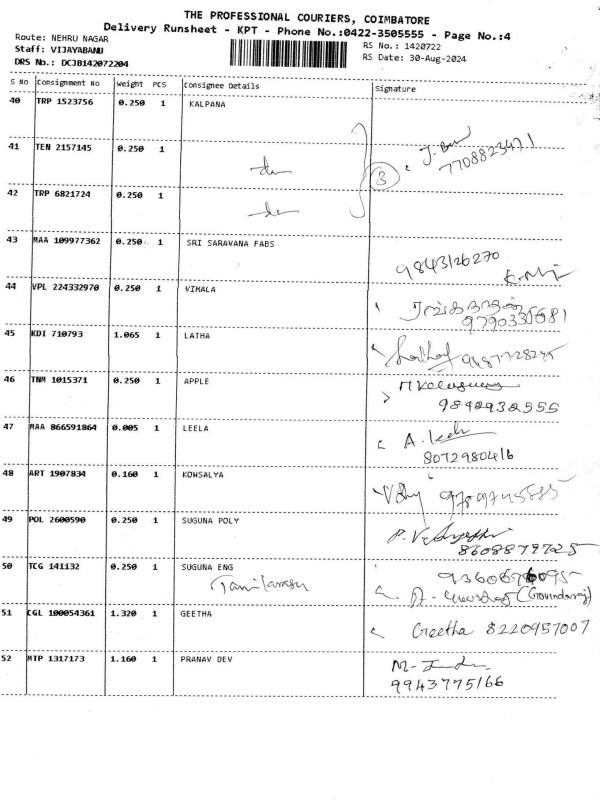 THE PROFESSIONAL COURIERS, COIMBATORE
Delivery Runsheet - KPT - Phone No.:0422-3505555 - Page No.:4
Route: NEHRU NAGAR
Staff: VIJAYABANU
DRS No.: DCJB142072204
RS No.: 1420722
RS Date: 30-Aug-2024
S No Consignment No Weight PCS Consignee Details Signature
40 TRP 1523756 0.250 1 KALPANA
41 TEN 2157145 0.250 1
7708823471
3
42 TRP 6821724 0.250 1
43 MAA 109977362 0.250 1 SRI SARAVANA FABS
9843126270
44 VPL 224332970 0.250 1 VIMALA
ரங்கநாதன்
45 KDI 710793 1.065 1 LATHA
46 TNM 1015371 0.250 1 APPLE
9842932555
47 MAA 866591864 0.005 1 LEELA
A. Leela
8072980416
48 ART 1907834 0.160 1 KOWSALYA
49 POL 2600590 0.250 1 SUGUNA POLY
8608879725
50 TCG 141132 0.250 1 SUGUNA ENG
Tamilarasu
(Govindaraj)
51 CGL 100054361 1.320 1 GEETHA
Geetha 8220957007
52 MTP 1317173 1.160 1 PRANAV DEV
9943775166